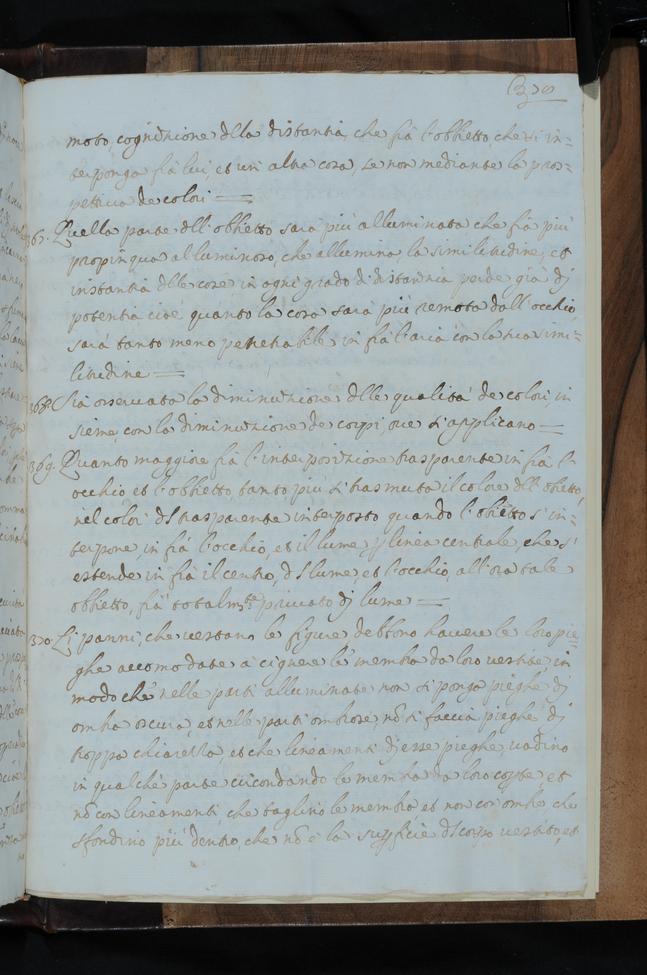 moto, cognitione dlla distantia, che fia l'obbietto, che si in=
terponga fra lui, et un altra cosa, se non mediante la pros=
pettiva de colori
367. Quella parte dll'obbietto sarà più alluminata che fia più
propinqua al luminoso, che allumina, la similitudine, et
instantia dlle cose in ogni grado di distantia perde gradj
potentia cioe quanto la cosa sarà più remota dall'occhio,
sarà tanto meno penetrabile in fra l'aria con la sua simi=
litudine
368. Sia osservata la diminutione dlle qualità de colori, in
sieme, con la diminutione de corpi, ove s'applicano
369. Quanto maggiore fia l'interpositione trasparente in fra l'
occhio et l'obbietto, tanto più si trasmuta il colore dll'obietto,
nel color dl trasparente interposto quando l'obietto s'in=
terpone, in fra l'occhio, et il lume p linea centrale, che si
estende in fra il centro, dl lume, et l'occhio, all'ora tale
obbietto, fia totalmte privato dj lume
370. Lj panni, che vestano le figure debbono havere le loro pie=
ghe accomodate a cignere le membra da loro vestite in
modo che nelle parti alluminate non si ponga pieghe dj
ombra oscura, et nelle parti ombrose, nō si faccia pieghe dj
troppa chiarezza, et che lineamenti dj esse pieghe, vadino
in qualche parte circondando le membra da loro coperte et
nō con lineamenti che taglino le membra et non con ombre che
sfondino più dentro, che nō è la supficie dl corpo vestito, et